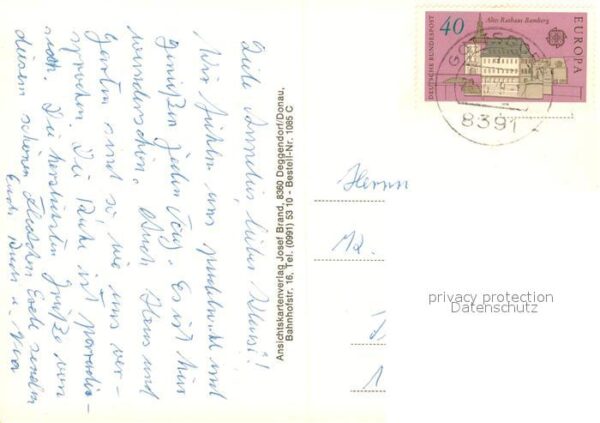 Liebe Annelies, lieber Klausi!
Wir fühlen uns pudelwohl und
genießen jeden Tag. Es ist hier
wunderschön. Auch Haus und
Garten sind so, wie uns ver-
sprochen. Die Ruhe ist paradie-
sisch. Die herzlichsten Grüße von
diesem schönen Fleckchen Erde senden
Euch u.
Ansichtskartenverlag Josef Brand, 8360 Deggendorf/Donau,
Bahnhofstr. 16, Tel. (0991) 53 10 - Bestell-Nr. 1085 C
DEUTSCHE BUNDESPOST
40
Altes Rathaus Bamberg
EUROPA
8391
Herrn
privacy protection
Datenschutz